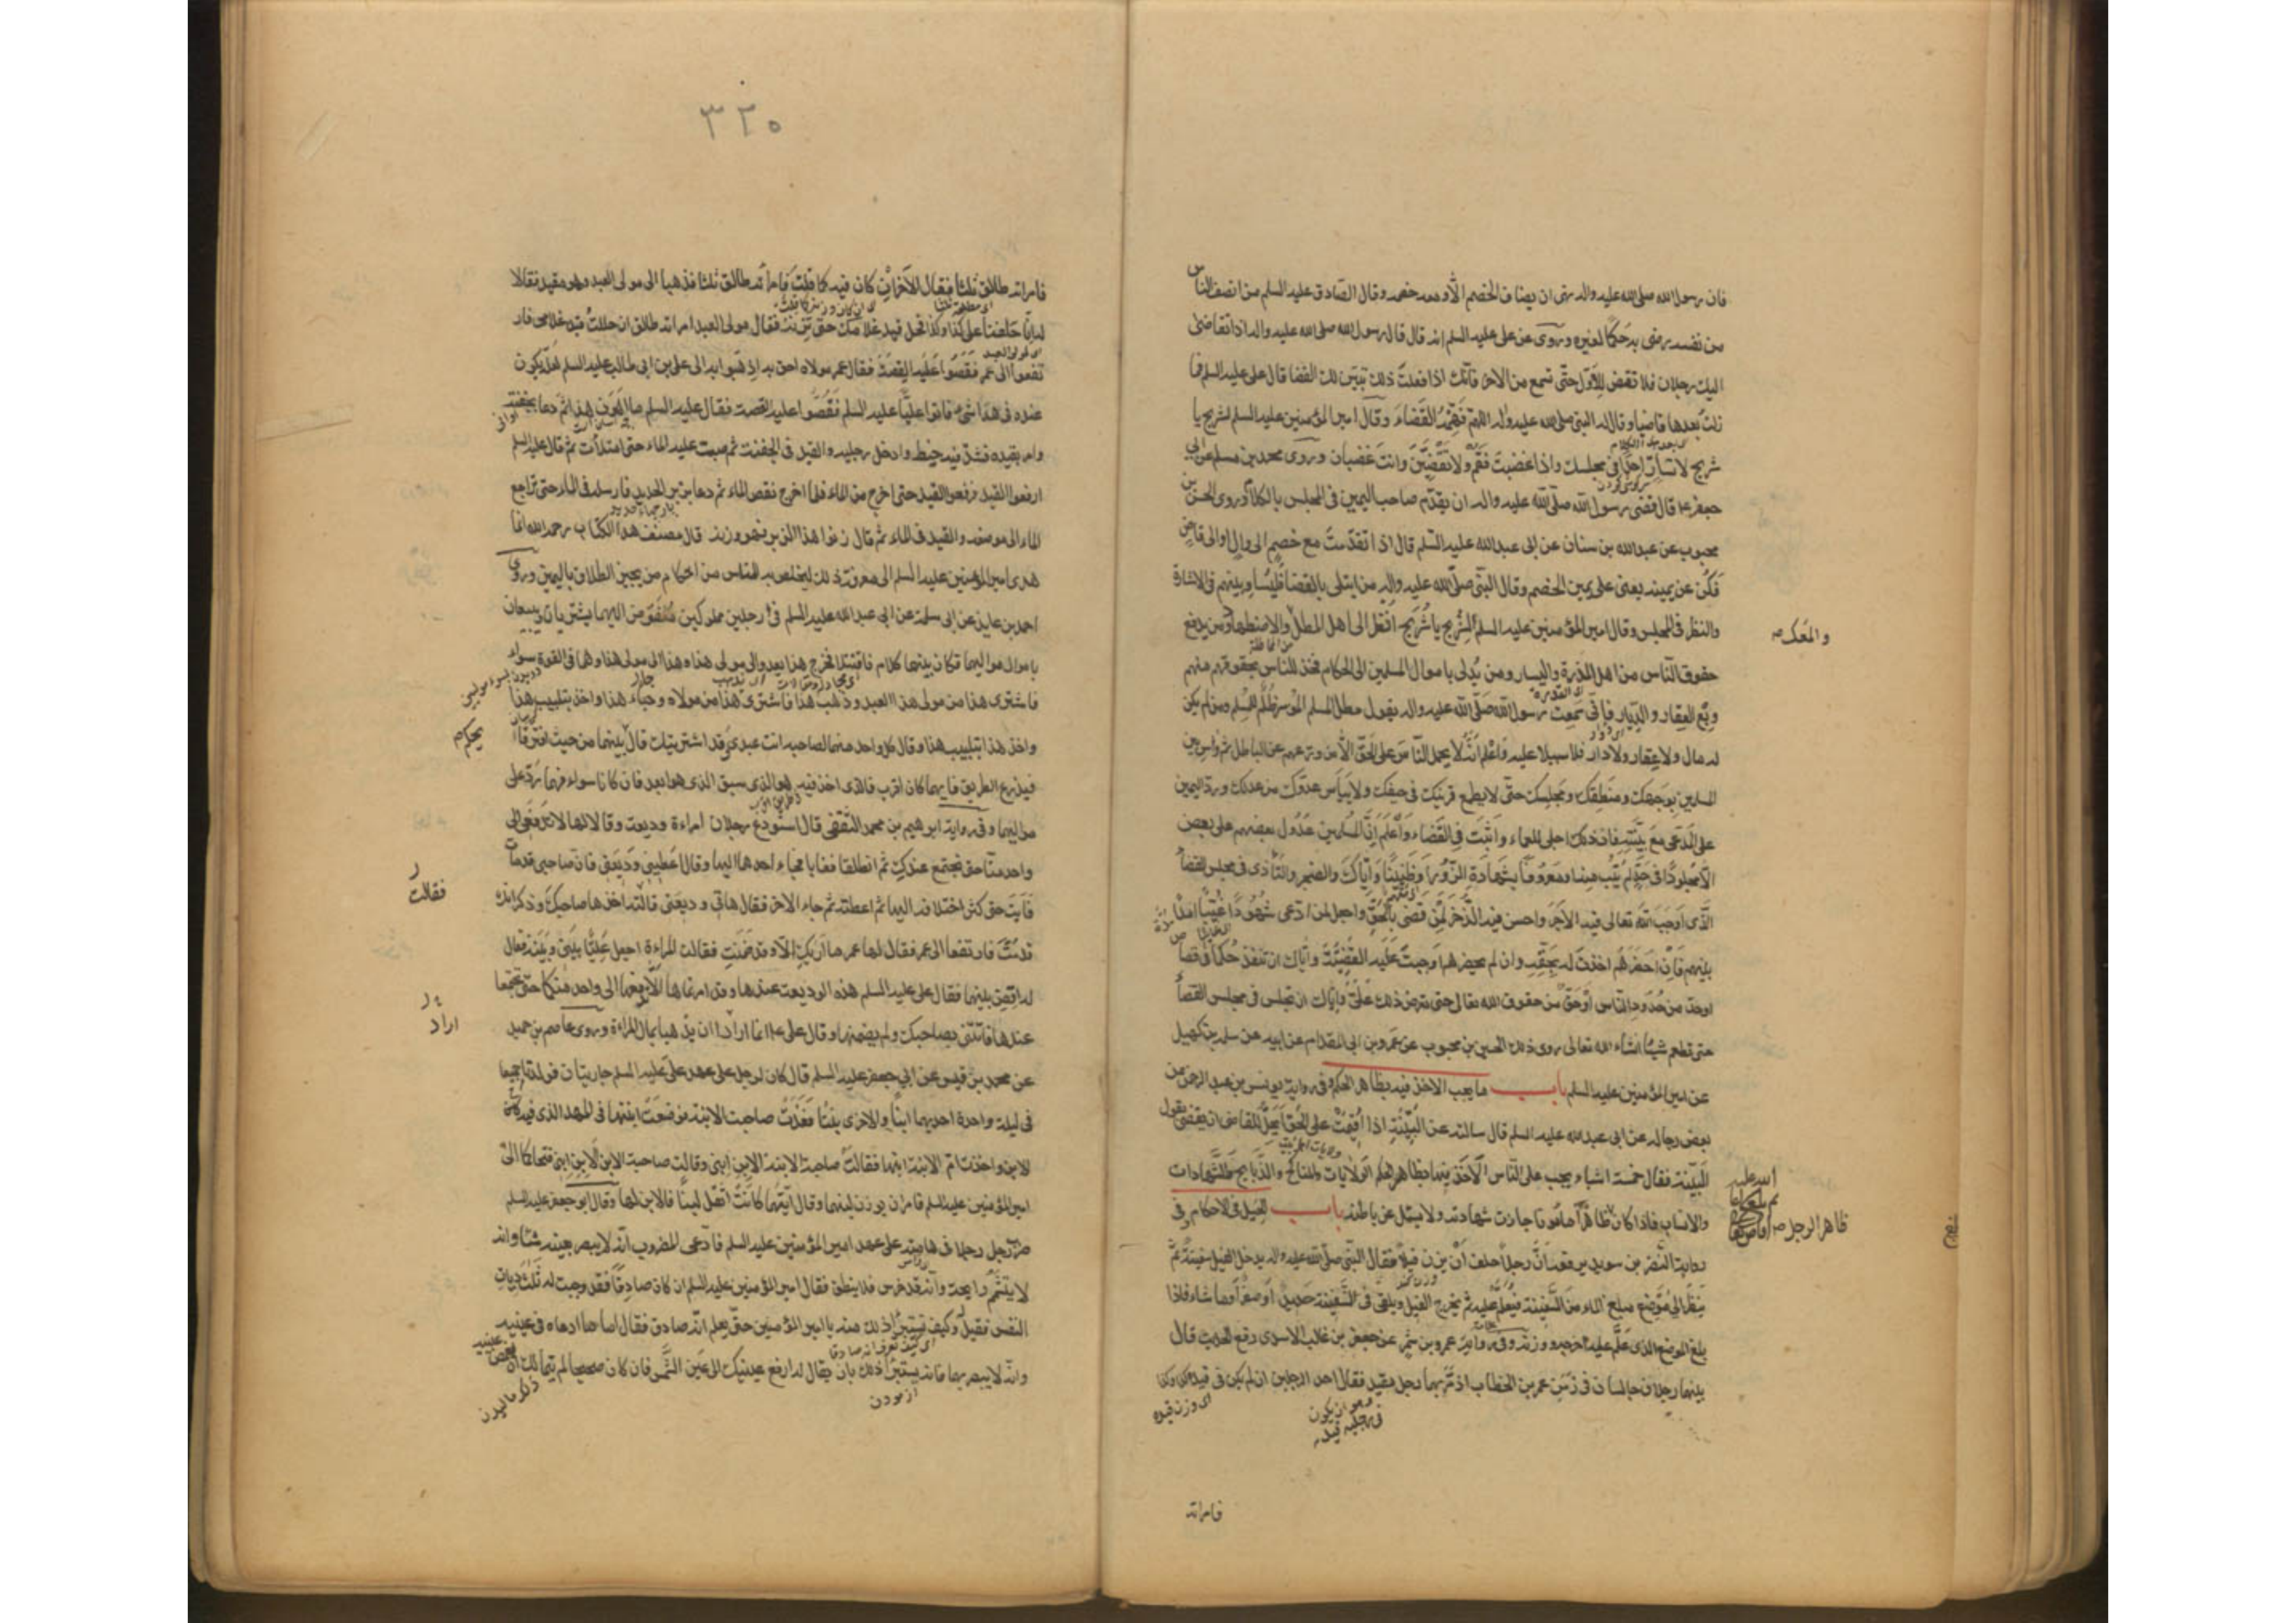 فان رسول الله صلى الله عليه واله نهى ان يضاف الخصم الا ومعه خصمه وقال الصادق عليه السلم من انصف الناس
من نفسه رضى به حكما لغيره وروى عن على عليه السلم انه قال قال رسول الله صلى الله عليه واله اذا تقاضى
اليك رجلان فلا تقض للاول حتى تسمع من الاخر فانك اذا فعلت ذلك تبين لك القضا قال على عليه السلم فما
زلت بعدها قاضيا وقال له النبى صلى الله عليه واله اللهم فهمه القضاء وقال امير المؤمنين عليه السلم لشريح يا
شريح لا تسار احدا فى مجلسك واذا غضبت فقم ولا تقضين وانت غضبان وروى محمد بن مسلم عن ابى
جعفر ع قال قضى رسول الله صلى الله عليه واله ان يقدم صاحب اليمين فى المجلس بالكلام وروى الحسن بن
محبوب عن عبدالله بن سنان عن ابى عبدالله عليه السلم قال اذا تقدمت مع خصم الى وال او الى قاض
فكن عن يمينه يعنى على يمين الخصم وقال النبى صلى الله عليه واله من ابتلى بالقضا فليساو بينهم فى الاشارة
والنظر فى المجلس وقال امير المؤمنين عليه السلم لشريح يا شريح انظر الى اهل المطل والاضطهاد ومن يدفع
والمعك
حقوق الناس من اهل المدرة واليسار ومن يدلى باموال المسلمين الى الحكام فخذ للناس بحقوقهم منهم
وبع العقار والديار فانى سمعت رسول الله صلى الله عليه واله يقول مطل المسلم الموسر ظلم للمسلم ومن لم يكن
له مال ولا عقار ولا دار فلا سبيل عليه واعلم انه لا يحمل الناس على الحق الا من وزعهم عن الباطل ثم واس بين
المسلمين بوجهك ومنطقك ومجلسك حتى لا يطمع قريبك فى حيفك ولا ييأس عدوك من عدلك ورد اليمين
على المدعى مع بينته فان ذلك اجلى للعماء واثبت فى القضاء واعلم ان المسلمين عدول بعضهم على بعض
الا مجلودا فى حد لم يتب منه او معروفا بشهادة الزور او ظنينا واياك والضجر والتأذى فى مجلس القضا
الذى اوجب الله تعالى فيه الاجر واحسن فيه الذخر لمن قضى بالحق واجعل لمن ادعى شهودا غيبا امدا
بينهم فان احضرهم اخذت له بحقه وان لم يحضرهم اوجبت عليه القضية واياك ان تنفذ حكما فى قصاص
اوحد من حدود الناس او حق من حقوق الله تعالى حتى تعرض ذلك على واياك ان تجلس فى مجلس القضا
حتى تطعم شيئا انشاء الله تعالى روى ذلك الحسين بن محبوب عن عمرو بن ابى المقدام عن ابيه عن سلمة بن كهيل
عن امير المؤمنين عليه السلم باب ما يجب الاخذ فيه بظاهر الحكم وفى رواية يونس بن عبد الرحمن عن
بعض رجاله عن ابى عبدالله عليه السلم قال سالته عن البينة اذا اقيمت على الحق ايحل للقاضى ان يقضى بقول
البينة فقال خمسة اشياء يجب على الناس الاخذ فيها بظاهر الحكم الولايات والمناكح والذبايح والشهادات
والانساب فاذا كان ظاهرا مأمونا جازت شهادته ولا يسئل عن باطنه باب الحيل فى الاحكام وفى
ظاهر الرجل
رواية النضر بن سويد يرفعه ان رجلا حلف ان يزن فيلا فقال النبى صلى الله عليه واله يدخل الفيل سفينة ثم
ينظر الى موضع مبلغ الماء من السفينة فيعلم عليه ثم يخرج الفيل ويلقى فى السفينة حديدا او صفرا او ما شاء فاذا
بلغ الموضع الذى علم عليه اخرجه ووزنه وفى رواية عمرو بن شمر عن جعفر بن غالب الاسدى رفع الحديث قال
بينما رجلان جالسان فى زمن عمر بن الخطاب اذ مر بهما رجل مقيد فقال احد الرجلين ان لم يكن فى قيده كذا وكذا
اى وزن قيده
فامراته
٣٢٥
فامراته طالق ثلثا فقال الاخر ان كان فيه كما قلت فامراته طالق ثلثا فذهبا الى مولى العبد وهو مقيد فقالا
له انا حلفنا على كذا وكذا فحل قيد غلامك حتى نزنه فقال مولى العبد امراته طالق ان حللت قيد غلامى فار
تفعوا الى عمر فقصوا عليه القصة فقال عمر مولاه احق به اذهبوا به الى على بن ابى طالب عليه السلم لعله يكون
عنده فى هذا شىء فاتوا عليا عليه السلم فقصوا عليه القصة فقال عليه السلم ما اهون هذا ثم دعا بجفنة
وامر بقيده فشد فيه خيط وادخل رجليه والقيد فى الجفنة ثم صبت عليه الماء حتى امتلأت ثم قال عليه السلم
ارفعوا القيد فرفعوا القيد حتى اخرج من الماء فلما اخرج نقص الماء ثم دعا بزبر الحديد فارسله فى الماء حتى تراجع
الماء الى موضعه والقيد فى الماء ثم قال زنوا هذا الزبر فهو وزنه قال مصنف هذا الكتاب رحمه الله انما
هدى امير المؤمنين عليه السلم الى معرفة ذلك ليخلص به الناس من احكام من يجيز الطلاق باليمين وروى
احمد بن عايذ عن ابى سلمة عن ابى عبد الله عليه السلم فى رجلين مملوكين مفوض اليهما يشتريان ويبيعان
باموال مواليهما فكان بينهما كلام فاقتتلا فخرج هذا يعدو الى مولى هذا وهذا الى مولى هذا وهما فى القوة سواء
فاشترى هذا من مولى هذا العبد وذهب هذا فاشترى هذا من مولاه وجاء هذا واخذ بتلبيب هذا
واخذ هذا بتلبيب هذا وقال كل واحد منهما لصاحبه انت عبدى قد اشتريتك قال بينهما من حيث افترقا
يحكم
فيذرع الطريق فايهما كان اقرب فالذى اخذ فيه هو الذى سبق الذى هو ابعد فان كانا سواء فهما رد على
مواليهما وفى رواية ابرهيم بن محمد الثقفى قال استودع رجلان امراءة وديعة وقالا لها لا تدفعى الى
واحد منا حتى نجتمع عندك ثم انطلقا فغابا فجاء احدهما اليها وقال اعطينى وديعتى فان صاحبى قد مات
فابت حتى كثر اختلافه اليها ثم اعطته ثم جاء الاخر فقال هاتى وديعتى قالت اخذها صاحبك وذكر انك
فقالت
قد مت فارتفعا الى عمر فقال لها عمر ما اريك الا وقد ضمنت فقالت المراءة اجعل عليا بينى وبينه فقال
له اقض بينهما فقال على عليه السلم هذه الوديعة عندها وقد امرتماها الا تدفعها الى واحد منكما حتى تجتمعا
عندها فاتنى بصاحبك ولم يضمنها وقال على ع انما ارادا ان يذهبا بمال المراءة وروى عاصم بن حميد
اراد
عن محمد بن قيس عن ابى جعفر عليه السلم قال كان لرجل على عهد على عليه السلم جاريتان فولدتا جميعا
فى ليلة واحدة احديهما ابنا والاخرى بنتا فغدت صاحبة الابنة فوضعت ابنتها فى المهد الذى فيه
الابن واخذت ام الابنة ابنها فقالت صاحبة الابنة الابن ابنى وقالت صاحبة الابن الابن ابنى فتحاكما الى
امير المؤمنين عليه السلم فامر ان يوزن لبنهما وقال ايتهما كانت اثقل لبنا فالابن لها وقال ابو جعفر عليه السلم
ضرب رجل رجلا فى هامته على عهد امير المؤمنين عليه السلم فادعى المضروب انه لا يبصر بعينه شيئا وانه
لا يشم رايحة وانه قد خرس فلا ينطق فقال امير المؤمنين عليه السلم ان كان صادقا فقد وجبت له ثلث ديات
النفس فقيل وكيف نستبرئ ذلك منه يا امير المؤمنين حتى يعلم انه صادق فقال اما ما ادعاه فى عينيه
وانه لا يبصر بهما فانه يستبرا ذلك بان يقال له ارفع عينيك الى عين الشمس فان كان صحيحا لم يتمالك الا
ازمودن